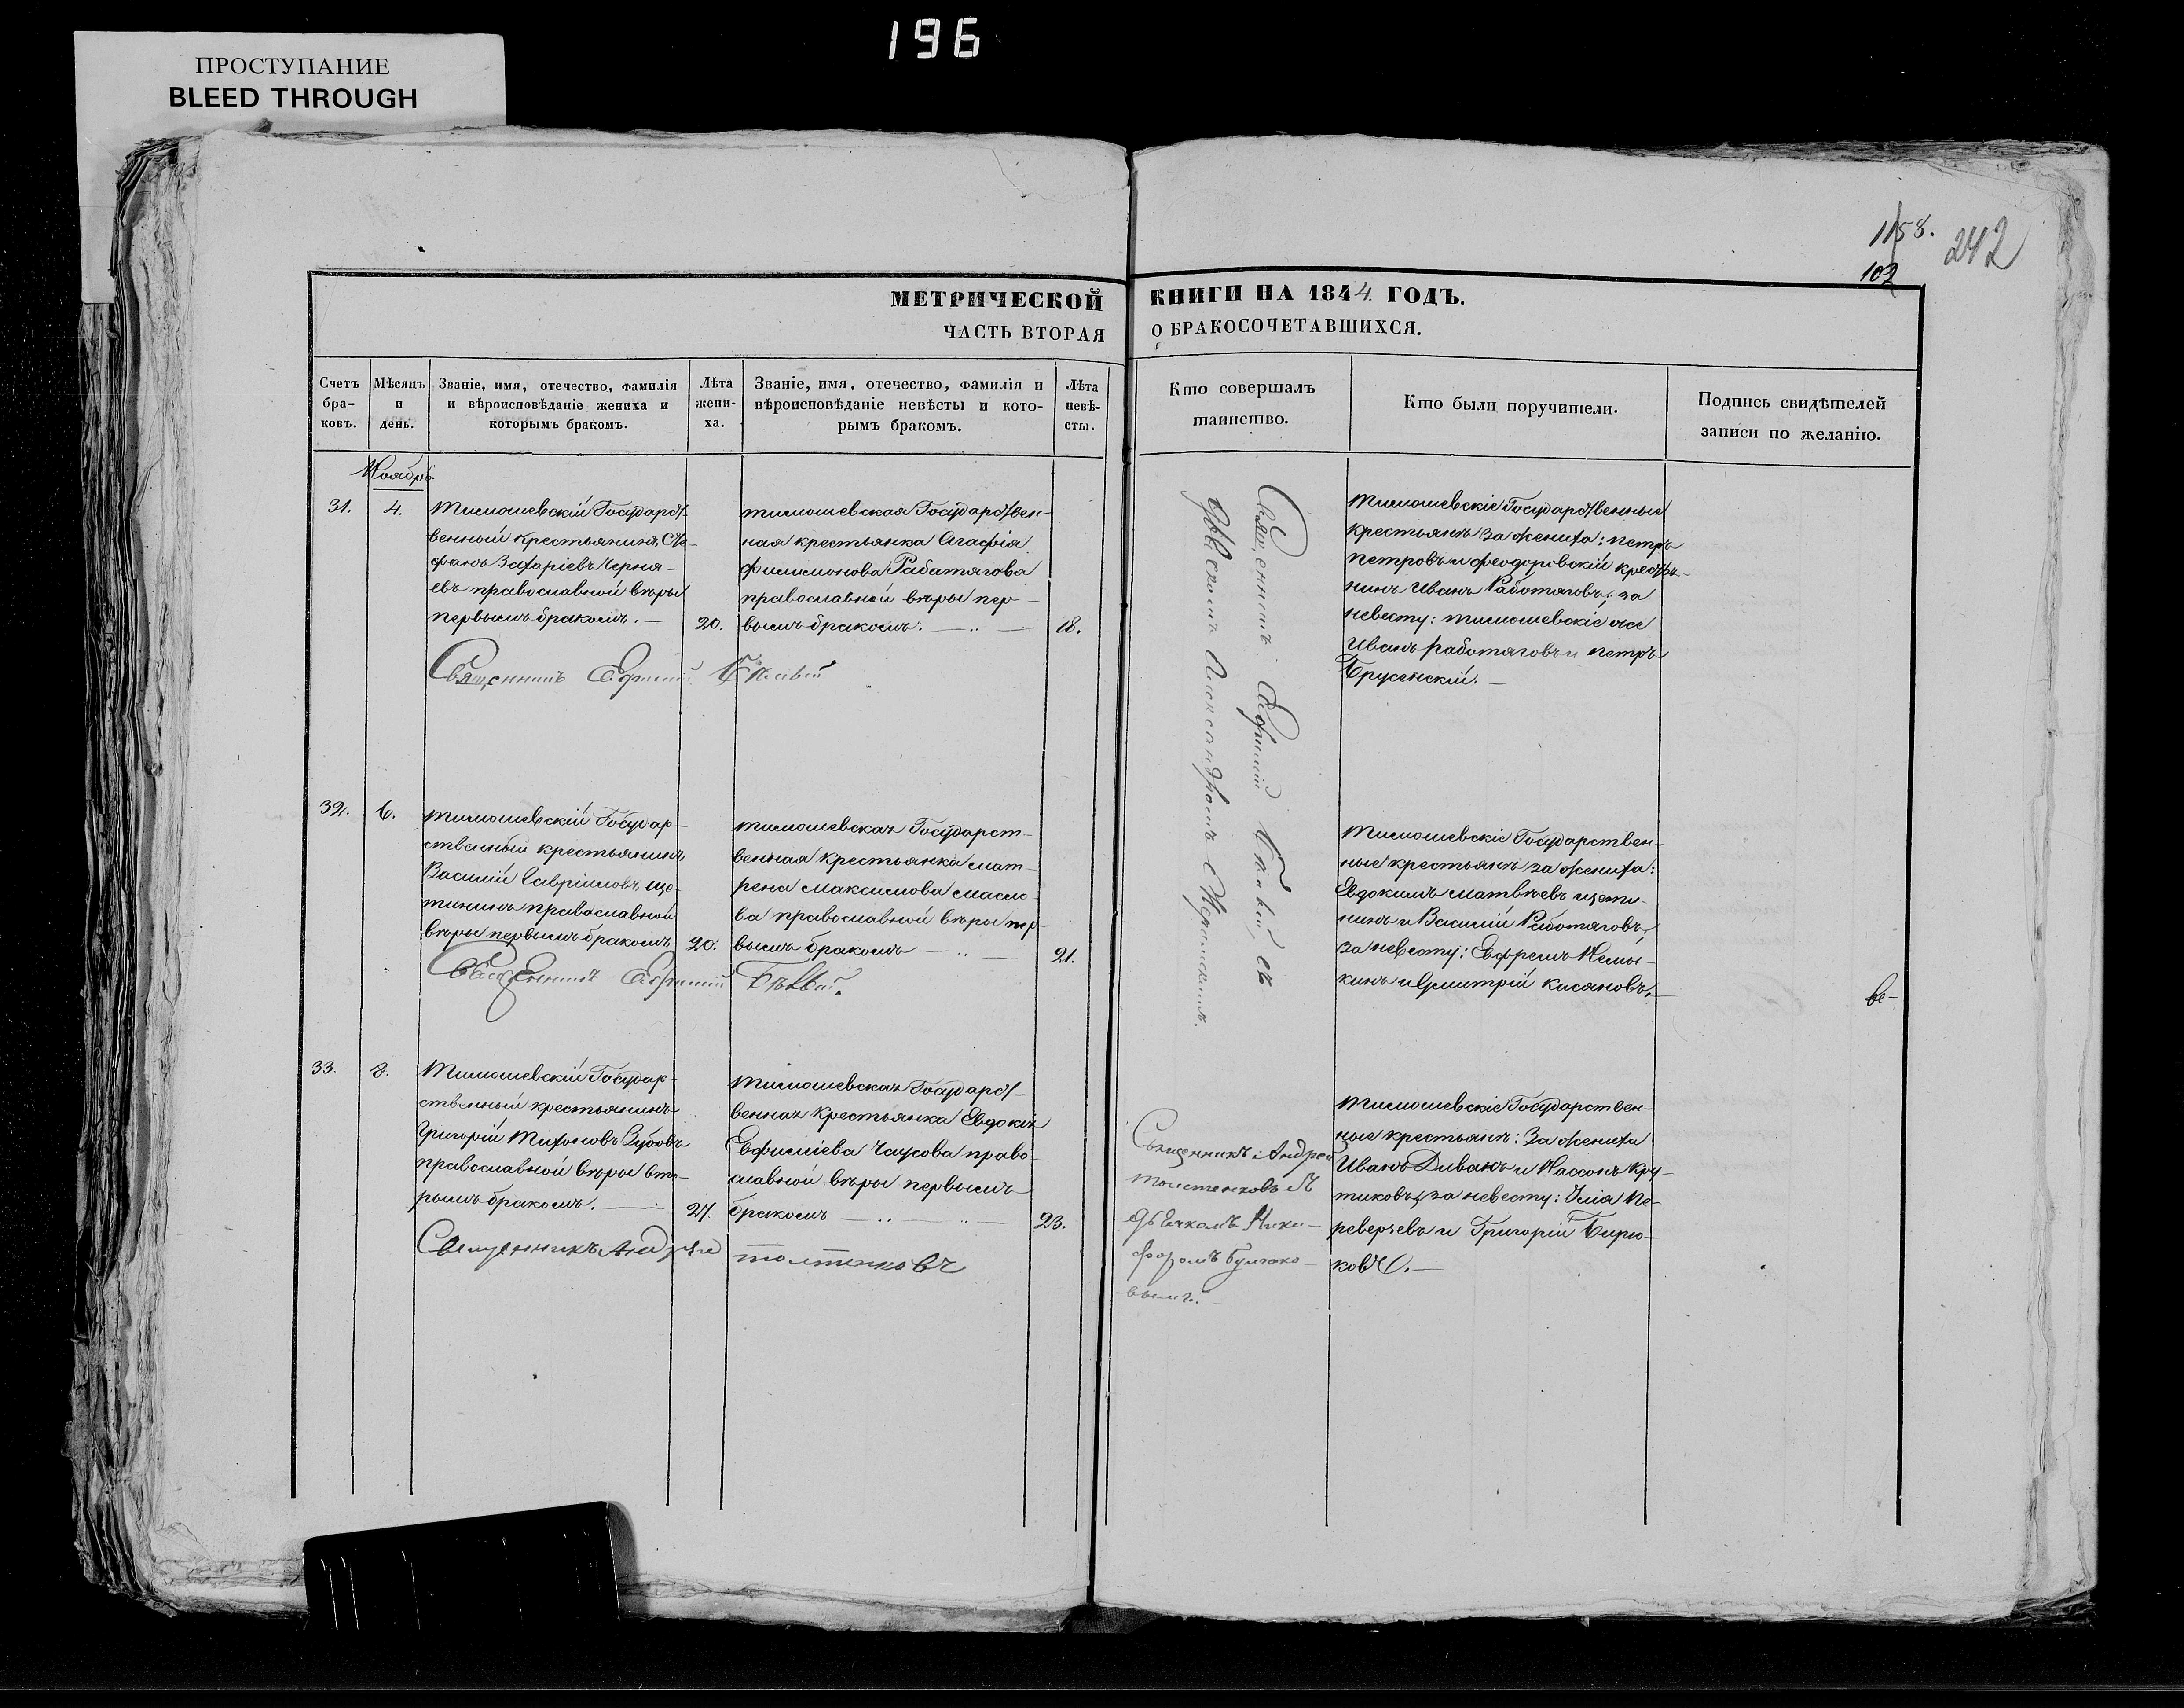 196
ПРОСТУПАНИЕ
BLEED THROUGH
1158.
242
102
МЕТРИЧЕСКОЙ КНИГИ НА 1844 ГОДЪ.
ЧАСТЬ ВТОРАЯ О БРАКОСОЧЕТАВШИХСЯ.
Счетъ
бра-
ковъ.
Мѣсяцъ
и
день.
Званіе, имя, отечество, фамилія
и вѣроисповѣданіе жениха и
которымъ бракомъ.
Лѣта
жени-
ха.
Званіе, имя, отечество, фамилія и
вѣроисповѣданіе невѣсты и кото-
рымъ бракомъ.
Лѣта
невѣ-
сты.
Кто совершалъ
таинство.
Кто были поручители.
Подпись свидѣтелей
записи по желанію.
Ноябрь.
31.
4.
Тимошевскій Государст-
венный крестьянинъ Сте-
фанъ Захаріевъ Черня-
евъ православной вѣры
первымъ бракомъ. —
20.
тимошевская Государствен-
ная крестьянка Агафія
Филимонова Работягова
православной вѣры пер-
вымъ бракомъ.
18.
Священникъ
Тимошевскіе Государственные
крестьянъ за жениха: петръ
петровъ и феодоровскій крестья-
нинъ Иванъ Работяговъ; за
невесту: тимошевскіе же
Иванъ работяговъ и петръ
Брусенскій. —
Священникъ
съ
32.
6.
тимошевскій Государ-
ственный крестьянинъ
Василій Гавріиловъ Ще-
тининъ православной
вѣры первымъ бракомъ
20.
тимошевская Государст-
венная крестьянка мат-
рена максимова масло-
ва православной вѣры пер-
вымъ бракомъ
21.
Священникъ
Тимошевскіе Государствен-
ные крестьянъ за жениха:
Евдокимъ матвѣевъ щети-
нинъ и Василій Работяговъ,
за невесту: Ефремъ
кинъ и Дмитрій касяновъ.
33.
8.
Тимошевскій Государ-
ственный крестьянинъ
Григорій Тихоновъ Зубовъ
православной вѣры вто-
рымъ бракомъ.
27.
тимошевская Государст-
венная крестьянка Евдокія
Ефиміева Чаусова право-
славной вѣры первымъ
бракомъ
23.
Священникъ Андрей толстенковъ
Священникъ Андрей
толстенковъ съ
дьячкомъ Ники-
форомъ Булгако-
вымъ.
Тимошевскіе Государствен-
ные крестьянъ: За жениха
Иванъ Диванъ и Нассонъ Кру-
тиковъ, за невесту: Илія Пе-
реверзевъ и Григорій Бирю-
ковъ. —